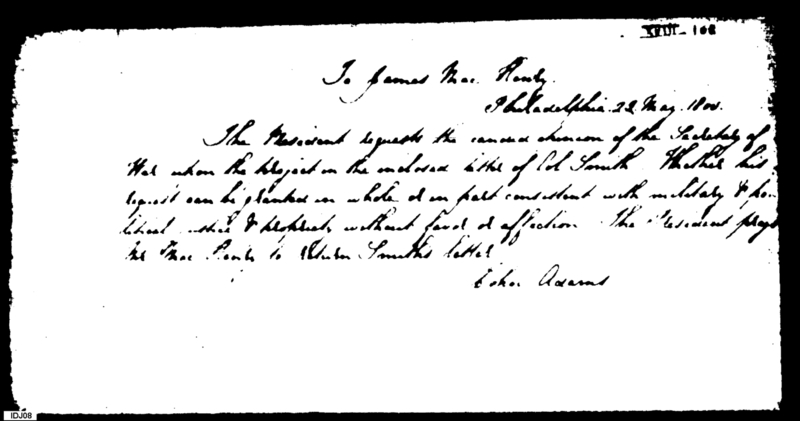 XVIII - 108
To James Mac. Henry.
Philadelphia. 22 May. 1800.
The President requests the candid opinion of the Secretary of
War upon the project in the enclosed letter of Col Smith. Whether his
request can be granted in whole or in part consistent with military & po-
litical justice & propriety without favor or affection. The President prays
Mr Mac Henry to return Smiths letter
John Adams
IDJ08